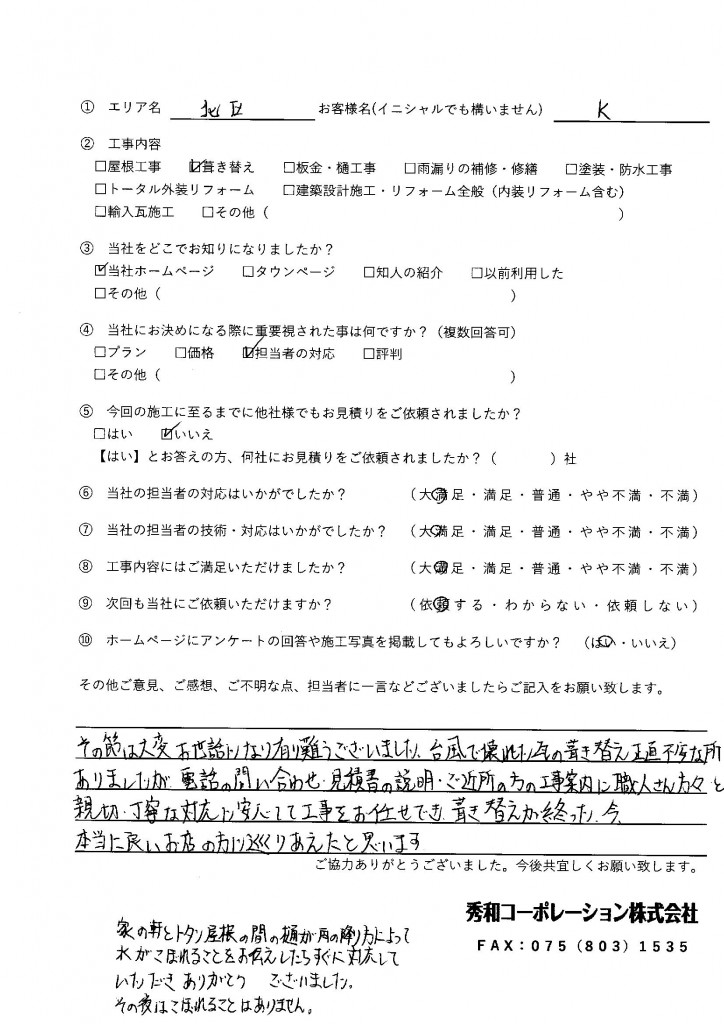 ① エリア名 北区 お客様名(イニシャルでも構いません) K
② 工事内容
□屋根工事 ☑葺き替え □板金・樋工事 □雨漏りの補修・修繕 □塗装・防水工事
□トータル外装リフォーム □建築設計施工・リフォーム全般（内装リフォーム含む）
□輸入瓦施工 □その他（ ）
③ 当社をどこでお知りになりましたか？
☑当社ホームページ □タウンページ □知人の紹介 □以前利用した
□その他（ ）
④ 当社にお決めになる際に重要視された事は何ですか？（複数回答可）
□プラン □価格 ☑担当者の対応 □評判
□その他（ ）
⑤ 今回の施工に至るまでに他社様でもお見積りをご依頼されましたか？
□はい ☑いいえ
【はい】とお答えの方、何社にお見積りをご依頼されましたか？（ ）社
⑥ 当社の担当者の対応はいかがでしたか？ （大満足・満足・普通・やや不満・不満）
⑦ 当社の担当者の技術・対応はいかがでしたか？ （大満足・満足・普通・やや不満・不満）
⑧ 工事内容にはご満足いただけましたか？ （大満足・満足・普通・やや不満・不満）
⑨ 次回も当社にご依頼いただけますか？ （依頼する・わからない・依頼しない）
⑩ ホームページにアンケートの回答や施工写真を掲載してもよろしいですか？ （はい・いいえ）
その他ご意見、ご感想、ご不明な点、担当者に一言などございましたらご記入をお願い致します。
その節は大変お世話になり有り難うございました。台風で壊れた瓦の葺き替え正直不安な所
ありましたが、電話の問い合わせ・見積書の説明・ご近所の方の工事案内に職人さん方々と
親切・丁寧な対応に安心して工事をお任せでき、葺き替えが終った、今、
本当に良いお店の方に巡りあえたと思います
ご協力ありがとうございました。今後共宜しくお願い致します。
秀和コーポレーション株式会社
FAX：075（803）1535
家の軒とトタン屋根の間の樋が雨の降り方によって
水がこぼれることをお伝えしたらすぐに対応して
いただき ありがとう ございました。
その後はこぼれることはありません。